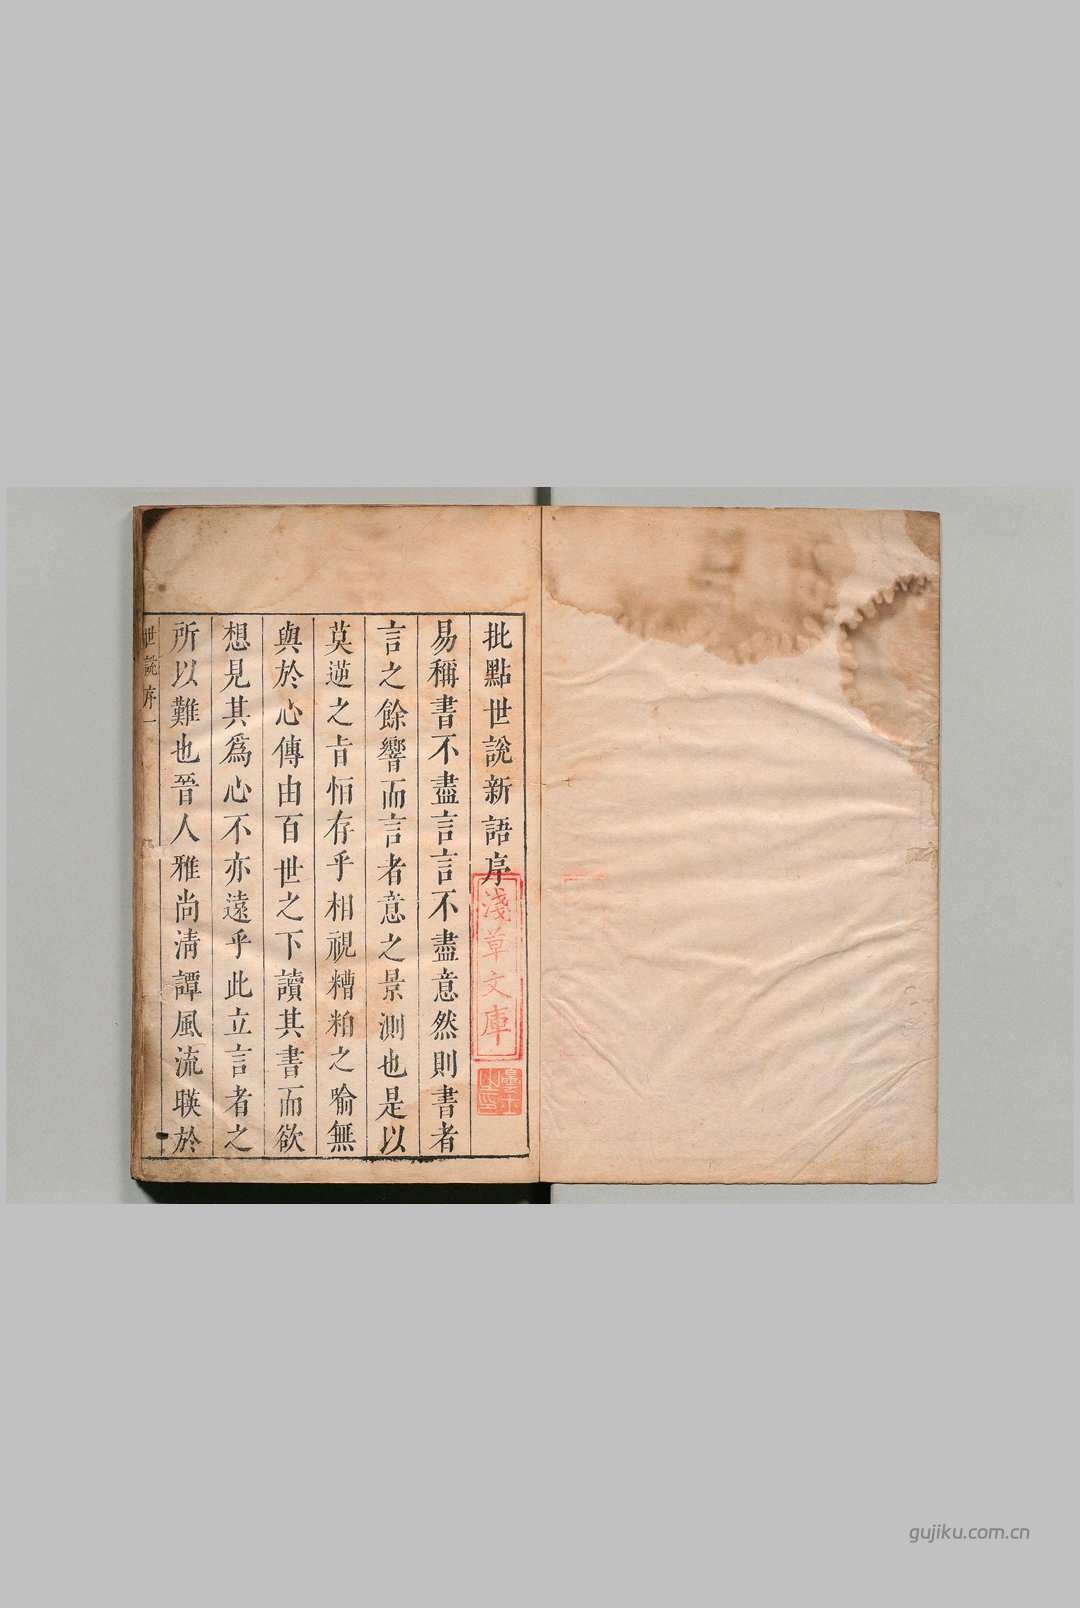 批點世說新語序
易稱書不盡言言不盡意然則書者
言之餘響而言者意之景測也是以
莫逆之㫖恒存乎相視糟粕之喻無
與於心傳由百世之下讀其書而欲
想見其爲心不亦遠乎此立言者之
所以難也晉人雅尚清譚風流暎於
世說序一
淺草文庫
gujiku.com.cn